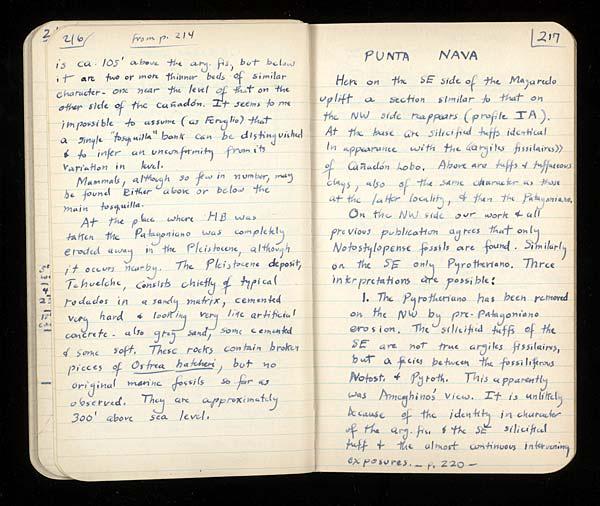 216 from p. 214
is ca. 105' above the arg. fis, but below
it are two or more thinner beds of similar
character - one near the level of that on the
other side of the cañadón. It seems to me
impossible to assume (as Feruglio) that
a single "tosquilla" bank can be distinguished
& to infer an unconformity from its
variation in level.
Mammals, although so few in number, may
be found either above or below the
main tosquilla.
At the place where HB was
taken the Patagoniano was completely
eroded away in the Pleistocene, although
it occurs nearby. The Pleistocene deposit,
Tehuelche, consists chiefly of typical
rodados in a sandy matrix, cemented
very hard & looking very like artificial
concrete - also gray sand, some cemented
& some soft. These rocks contain broken
pieces of Ostrea hatcheri, but no
original marine fossils so far as
observed. They are approximately
300' above sea level.
217
PUNTA NAVA
Here on the SE side of the Mazaredo
uplift a section similar to that on
the NW side reappears (profile IA).
At the base are silicified tuffs identical
in appearance with the (argiles fissilaires))
of Cañadón Lobo. Above are tuffs & tuffaceous
clays, also of the same character as those
at the latter locality, & then the Patagoniano.
On the NW side our work & all
previous publication agrees that only
Notostylopense fossils are found. Similarly
on the SE only Pyrotheriano. Three
interpretations are possible:
1. The Pyrotheriano has been removed
on the NW by pre-Patagoniano
erosion. The silicified tuffs of the
SE are not true argiles fissilaires,
but a facies between the fossiliferous
Notost. & Pyroth. This apparently
was Ameghino's view. It is unlikely
because of the identity in character
of the arg. fis. & the SE silicified
tuff & the almost continuous intervening
exposures. - p. 220 -